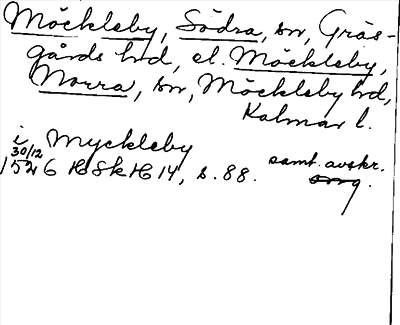 Möckleby, Södra, sn, Gräs-
gårds hd, el. Möckleby,
Norra, sn, Möckleby hd,
Kalmar l.
i Myckleby
30/12
1526 HSkH 14, s. 88. samt. avskr.